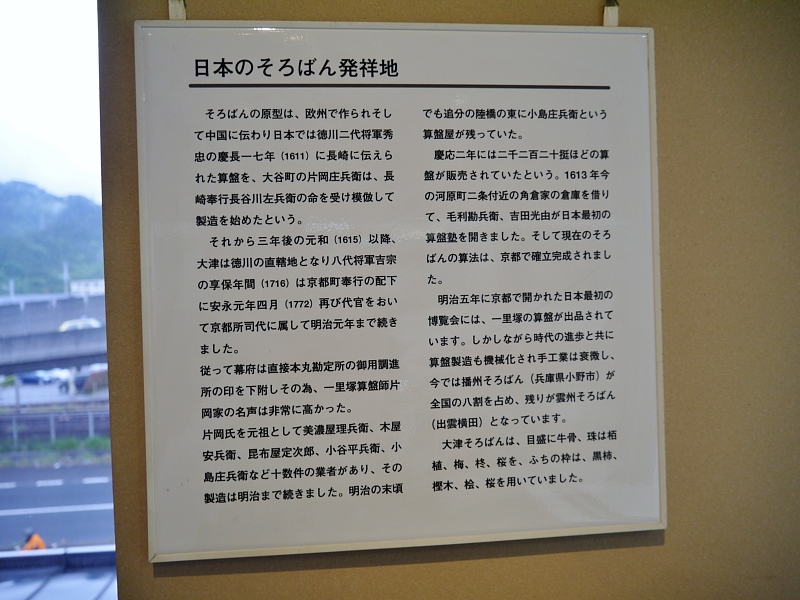 日本のそろばん発祥地
そろばんの原型は、欧州で作られそし
て中国に伝わり日本では徳川二代将軍秀
忠の慶長一七年（1611）に長崎に伝えら
れた算盤を、大谷町の片岡庄兵衛は、長
崎奉行長谷川左兵衛の命を受け模倣して
製造を始めたという。
それから三年後の元和（1615）以降、
大津は徳川の直轄地となり八代将軍吉宗
の享保年間（1716）は京都町奉行の配下
に安永元年四月（1772）再び代官をおい
て京都所司代に属して明治元年まで続き
ました。
従って幕府は直接本丸勘定所の御用調進
所の印を下附しその為、一里塚算盤師片
岡家の名声は非常に高かった。
片岡氏を元祖として美濃屋理兵衛、木屋
安兵衛、昆布屋定次郎、小谷平兵衛、小
島庄兵衛など十数件の業者があり、その
製造は明治まで続きました。明治の末頃
でも追分の陸橋の東に小島庄兵衛という
算盤屋が残っていた。
慶応二年には二千二百二十挺ほどの算
盤が販売されていたという。1613年今
の河原町二条付近の角倉家の倉庫を借り
て、毛利勘兵衛、吉田光由が日本最初の
算盤塾を開きました。そして現在のそろ
ばんの算法は、京都で確立完成されまし
た。
明治五年に京都で開かれた日本最初の
博覧会には、一里塚の算盤が出品されて
います。しかしながら時代の進歩と共に
算盤製造も機械化され手工業は衰微し、
今では播州そろばん（兵庫県小野市）が
全国の八割を占め、残りが雲州そろばん
（出雲横田）となっています。
大津そろばんは、目盛に牛骨、珠は栢
植、梅、柊、桜を、ふちの枠は、黒柿、
樫木、桧、桜を用いていました。